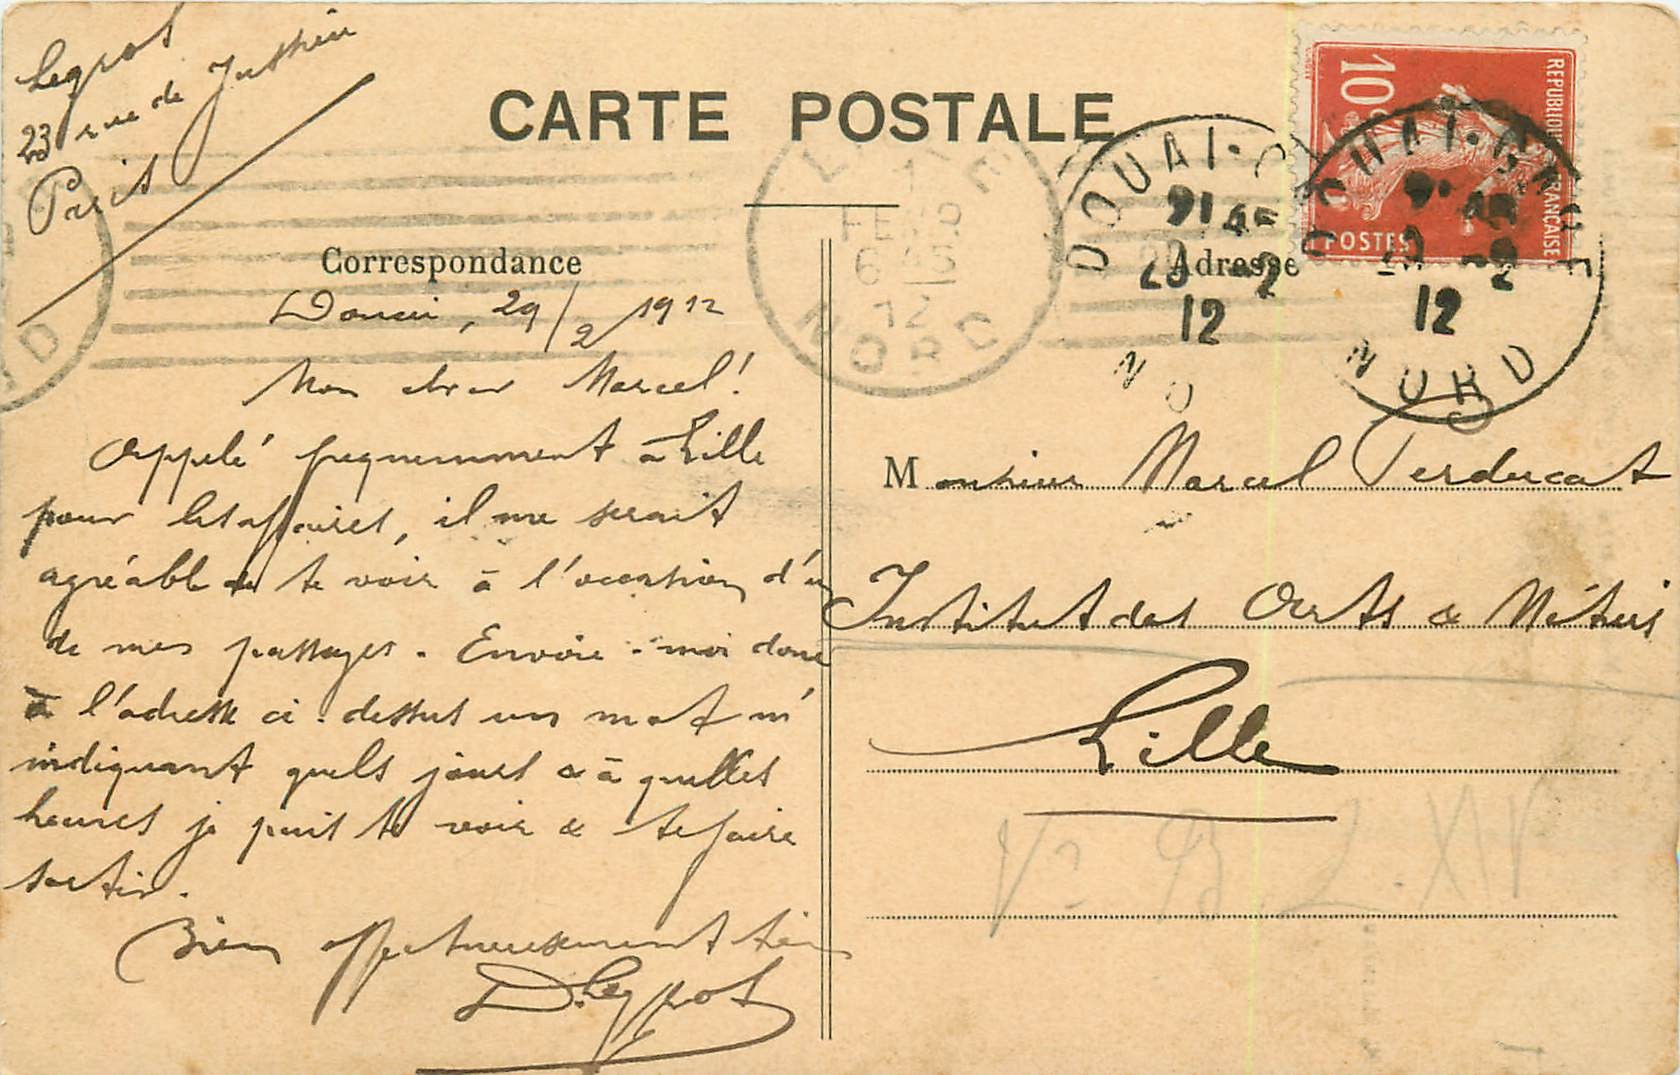 Legrot
23 rue de Jussieu
Paris
CARTE POSTALE
Correspondance
Douai, 29/2 1912
Mon cher Marcel!
Appelé frequemment à Lille
pour les affaires, il me serait
agréable de te voir à l'occasion d'un
de mes passages. Envoie-moi donc
à l'adresse ci-dessus un mot m'
indiquant quels jours & à quelles
heures je puis te voir & te faire
sortir.
Bien affectueusement tien
D. Legrot
REPUBLIQUE FRANCAISE
10c
POSTES
DOUAI-GARE
12
NORD
DOUAI
12
NO
LILLE
FEVR
6 45
12
NORD
Adresse
Monsieur Marcel Perducat
Institut des Arts & Métiers
Lille